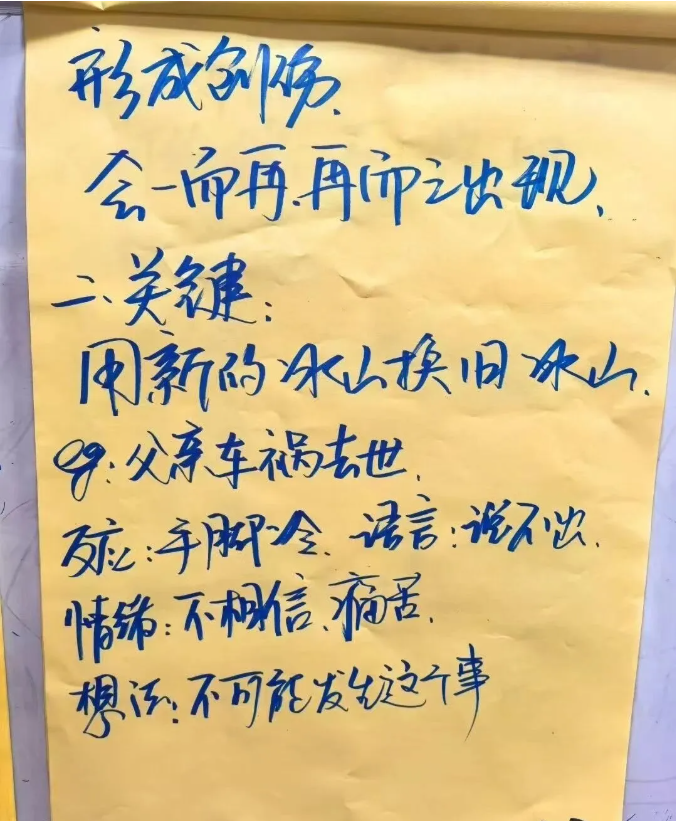 形成创伤.
会一而再.再而三出现、
二、关键：
用新的冰山换旧冰山.
eg：父亲车祸去世.
反应：手脚冷、语言：说不出.
情绪：不相信、痛苦.
想法：不可能发生这个事